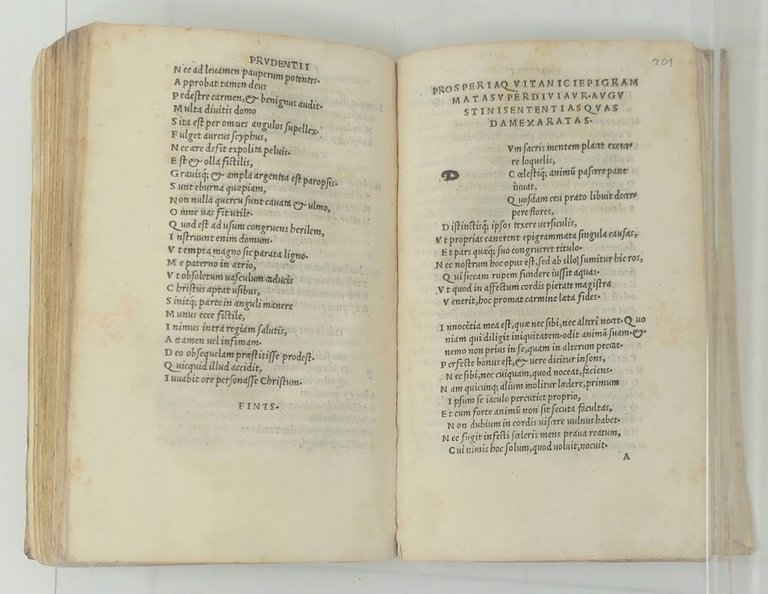 PRVDENTII
N ec ad leuamen pauperum potentes.
A pprobat tamen deus
P edestre carmen, & benignus audit.
M ulta diuitis domo
S ita est per omnes angulos supellex.
F ulget aureus scyphus,
N ec ære defit expolita peluis.
E st & olla fictilis,
G rauisq; & ampla argentea est paropsis.
S unt eburna quæpiam,
N on nulla quercu sunt cauata & ulmo,
O mne uas fit utile.
Q uod est ad usum congruens herilem,
I nstruunt enim domum.
V t empta magno sic parata ligno.
M e paterno in atrio,
V t obsoletum uasculum caducis
C hristus aptat usibus,
S initq; parte in anguli manere
M unus ecce fictile,
I nimus intra regiam salutis,
A ttamen uel infimam.
D eo obsequelam præstitisse prodest.
Q uicquid illud accidit,
I uuabit ore personasse Christum.
FINIS.
201
PROSPERI AQVITANICI EPIGRAM
MATA SVPER DIVI AVR. AVGV
STINI SENTENTIAS QVAS
DAM EXARATAS.
Vm sacris mentem placet exerce-
re loquelis,
C oelestiq; animũ pascere pane
iuuat,
Q uosdam ceu prato libuit decer-
pere flores,
D istinctisq; ipsos texere uersiculis,
V t proprias canerent epigrammata singula causas,
E t pars quæq; suo congrueret titulo.
N ec nostrum hoc opus est, sed ab illo sumitur hic ros,
Q ui siccam rupem fundere iussit aquas.
V t quod in affectum cordis pietate magistra
V enerit, hoc promat carmine læta fides.
I nnocẽtia mea est, quæ nec sibi, nec alteri nocet. Q uo
niam qui diligit iniquitatem. odit animã suam. &
nemo non prius in se, quam in alterum peccat.
P erfecte bonus est, & uere dicitur insons,
N ec sibi, nec cuiquam, quod noceat, faciens.
N am quicunq; alium molitur lædere, primum
I psum se iaculo percutiet proprio,
E t cum forte animũ non sit secuta facultas,
N on dubium in cordis uiscere uulnus habet.
N ec fugit infecti sceleris mens praua reatum,
C ui nimis hoc solum, quod uoluit, nocuit.
A